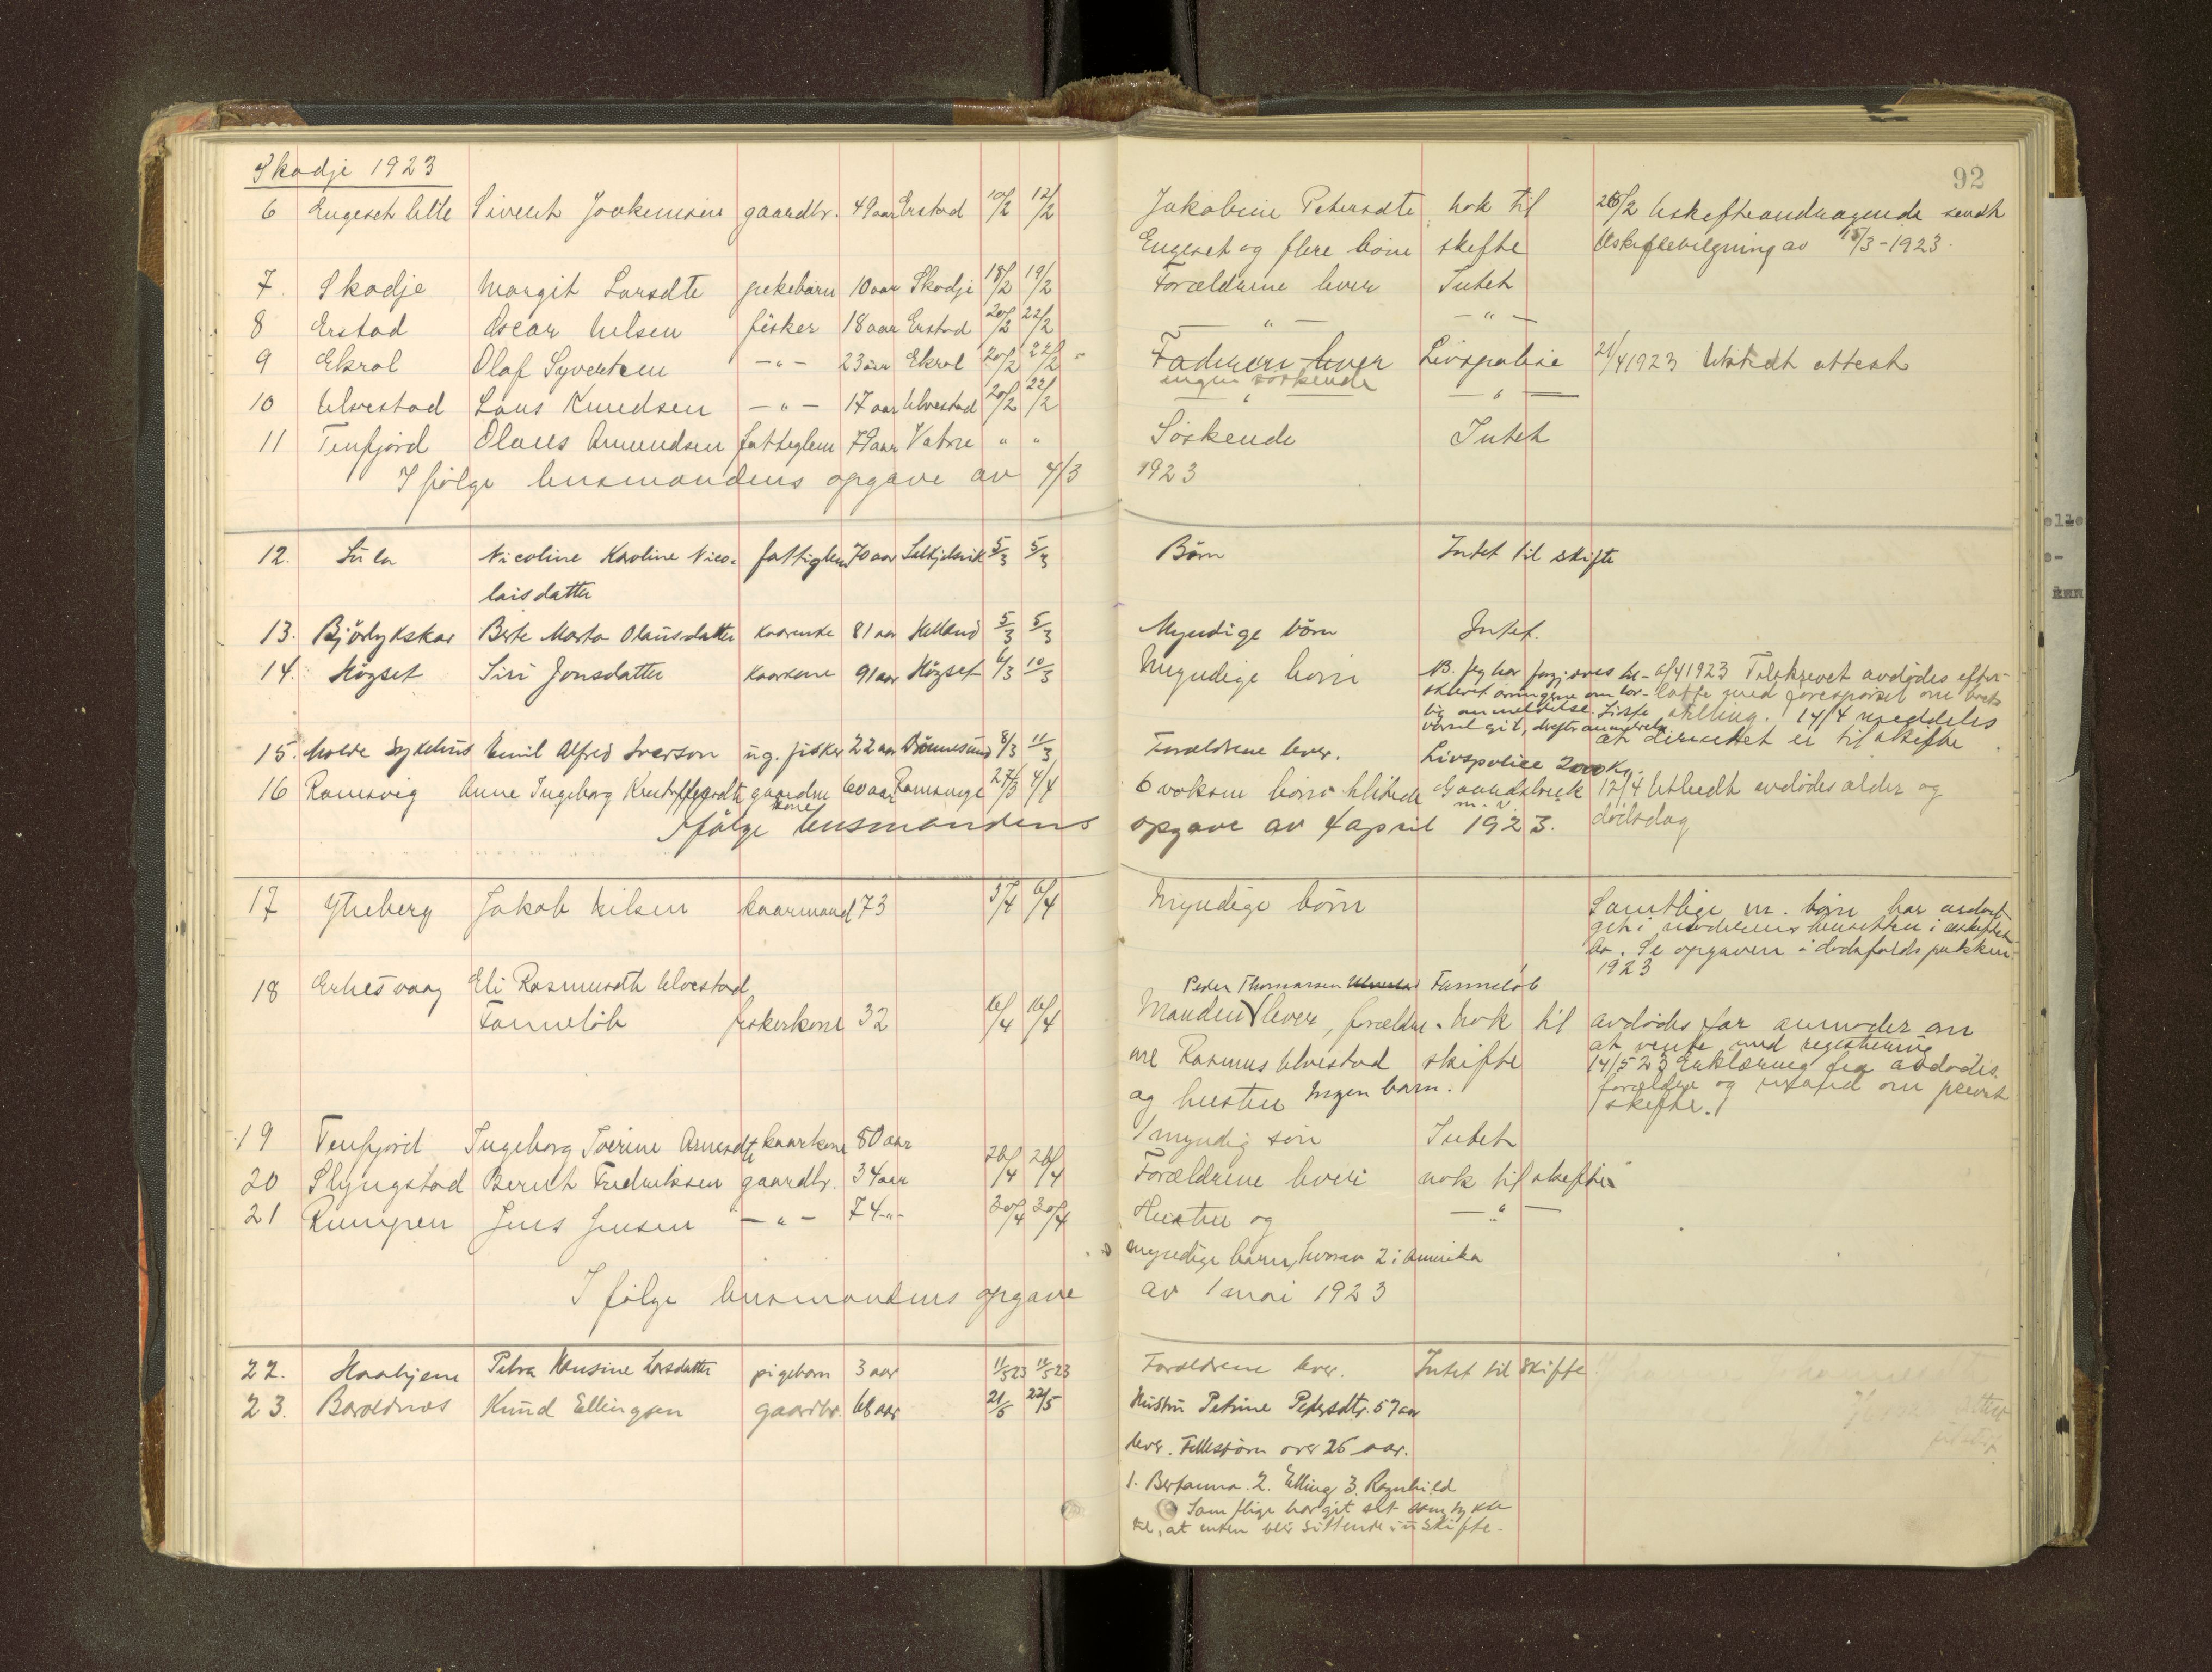 92
Skodje 1923
6 Engeset lille Sivert Joakimsen gaardbr. 49 aar Erstad 10/2 12/2 Jakobine Petersdtr nok til 26/2 Uskifteandragende sendt
Engeset og flere börn skifte Uskiftebevilgning av 15/3-1923.
7. Skodje Margit Larsdtr pikebarn 10 aar Skodje 18/2 19/2 Forældrene lever Intet
8 Erstad Oscar Nilsen fisker 18 aar Erstad 20/2 22/2 — " — — " —
9 Ekrol Olaf Syvertsen — " — 23 aar Ekrol 20/2 22/2 Faderen lever Livspolise 21/4 1923 Utstedt attest
ingen söskende
10 Ulvestad Laus Knudsen — " — 17 aar Ulvestad 20/2 22/2 — " — — " —
11 Tenfjord Olaus Amundsen fattiglem 79 aar Vatne " " Söskende Intet
Ifölge lensmandens opgave av 4/3 1923
12. Sula Nicoline Karoline Nico- fattiglem 70 aar 5/3 5/3 Börn Intet til skifte
laisdatter
13. Björlykskar Berte Marta Olausdatter kaarenke 81 aar Helland 5/3 5/3 Myndige börn Intet.
14. Högset Siri Jonsdatter kaarkone 91 aar Högset 6/3 10/3 Myndige börn NB. Jeg har 6/4 1923 Tilskrevet avdødes efter-
latte med forespørsel om
stilling. 14/4 meddeles
15. Molde Sykehus Emil Alfred Iverson ug. fisker 22 aar 8/3 11/3 Forældrene lever. Livspolice 2000 Kr. at der intet er til skifte
16 Ramsvig Anne Ingeborg gaardm. 60 aar Ramsvig 27/3 4/4 6 voksne börn Gaardsbruk 12/4 Utbedt avdødes alder og
kone m. v. dödsdag
Ifölge lensmandens opgave av 4 april 1923.
17 Ytreberg Jakob Nilsen kaarmand 73 3/4 6/4 Myndige börn Samtlige m. börn har
Se opgaven i dödsfaldspakken
1923
18 Erhesvaag Eli Rasmusdtr Ulvestad Peder Thomassen Ulvestad Fannelöb
Fannelöb fiskerkone 32 16/4 16/4 Manden lever, forældre- nok til avdödes far anmoder om
ne Rasmus Ulvestad skifte at vente med registrering
og hustru Ingen barn. 14/5 23 Erklæring fra avdödes
forældre og om privat
skifte.
19 Tenfjord Ingeborg Iverine kaarkone 80 aar 1 myndig sön Intet
20 Slyngstad Bernt Fredriksen gaardbr. 34 aar 26/4 26/4 Forældrene lever nok til skifte
21 Rumpen Jens Jensen — " — 74 -"- 20/4 30/4 Hustru og — " —
myndige barn, hvorav 2 i Amerika
Ifölge lensmandens opgave av 1 mai 1923
22. Haahjem Petra Hansine Larsdatter pigebarn 3 aar 11/5 23 12/5 23 Forældrene lever. Intet til skifte
23. Baraldnes Knud Ellingsen gaardbr. 68 aar 21/5 22/5 Hustru Petrine Pedersdtr. 57 aar
lever. Fellesbörn over 25 aar.
1. Bertanna. 2. Elling 3. Ragnhild
Samtlige har git sit samtykke
til, at enken blir sittende i uskifte.